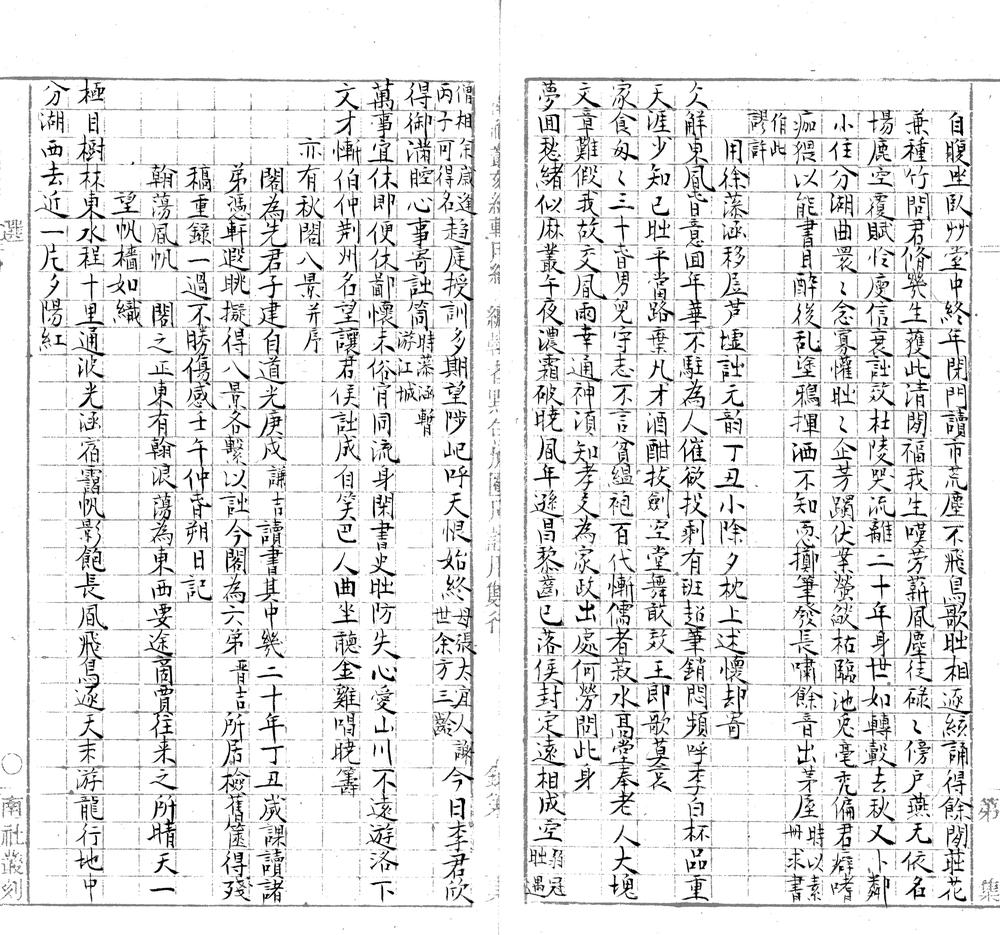 自腹坐臥艸堂中終年閉門讀市荒塵不飛鳥歌出相逐絃誦得餘閒莊花
兼種竹問君脩與生獲此清閒福我生嘆勞薪風塵徒碌〻傍戶燕无依名
場鹿空覆賦怜庾信哀詩效杜陵哭流離二十年身世如轉轂去秋又卜鄰
小住分湖曲睘〻念寡懽出〻企芳躅伏案螢㷔枯臨池兎毫禿偏君癖嗜
痂猥以能書目醉後乱塗鴉揮洒不知恧擲筆發長嘯餘音出茅屋時以素冊求書
伯此謬許
用徐藻涵移居芦墟詩元韵丁丑小除夕枕上述懷却寄
欠解東風昔意回年華不駐為人催欲投剩有班超筆銷悶頻呼李白杯品重
天涯少知己出平當路棄凡才酒酣拔劍空堂舞敢效王郎歌莫哀
家食匆〻三十音男兒守志不言貧縕袍百代慚儒者菽水髙堂奉老人大塊
文章難假我故交風雨幸通神須知孝友為家政出處何勞問此身
夢囬愁緒似麻叢午夜濃霜破曉風年遜昌黎齒已落侯封定遠相成空
僧相余歲逢丙子可得名趋庭授訓多期望陟屺呼天恨始終母張太宜人謝世余方三齡今日李君欣
得御滿腔心事寄詩筒時藻涵暫游江城
萬事宜休即便休鄙懷未俗肯同流身閑書史出防失心愛山川不遠遊洛下
文才慚伯仲荆州名望讓君侯詩成自笑巴人曲坐聽金雞唱曉籌
亦有秋閣八景并序
閣為先君子建自道光庚戌謙吉讀書其中幾二十年丁丑歲課讀諸
弟憑軒遐眺擬得八景各繫以詩今閣為六弟晋吉所居檢舊篋得殘
稿重録一過不勝傷感壬午仲春朔日記
翰蕩風帆　閣之正東有翰浪蕩為東西要途商賈往来之所晴天一
望帆檣如織
極目樹林東水程十里通波光涵宿靄帆影飽長風飛鳥逐天末游龍行地中
分湖西去近一片夕陽紅
選
第　集
南社叢刻